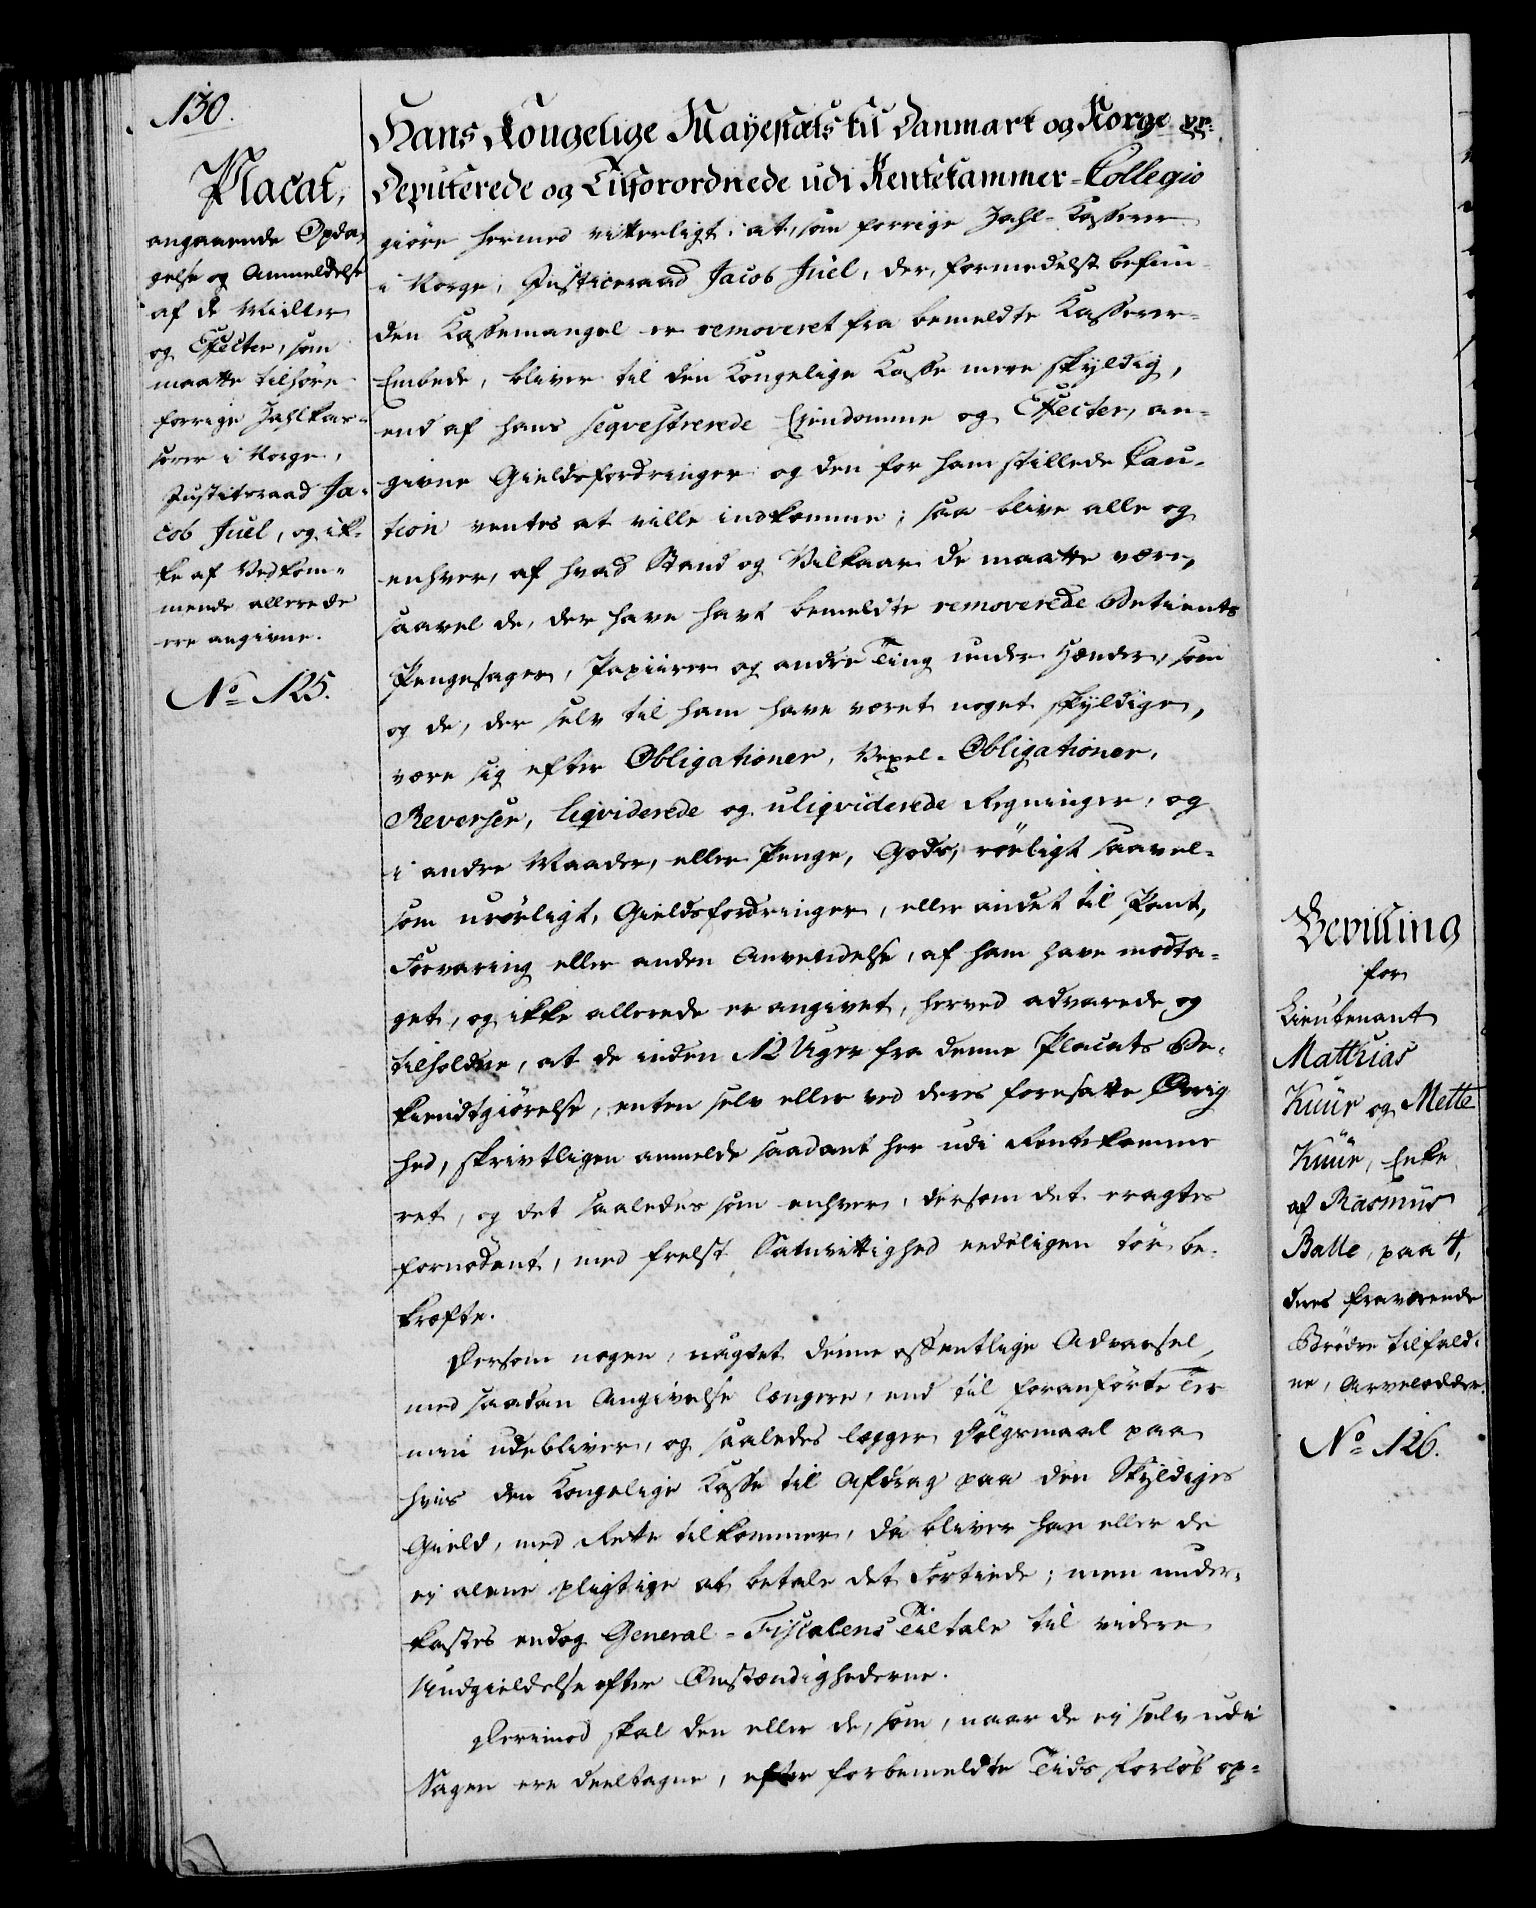 130.
Placat,
angaaende Opda-
gelse og Anmeldelse
af de Midler
og Effecter, som
maatte tilhøre
forrige Zahlkas-
serer i Norge,
Justitsraad Ja-
cob Juel, og ik-
ke af Vedkom-
mende allerede
ere angivne.
No 125.
Hans Kongelige Mayestæts til Danmark og Norge pp.
Deputerede og Tilforordnede udi Rentekammer-Collegio
giöre hermed vitterligt: at, som forrige Zahl-Kasserer
i Norge, Justiceraad Jacob Juel, der, formedelst befun-
den Kassemangel er removeret fra bemeldte Kasserer-
Embede, bliver til den Kongelige Kasse mere skyldig,
end af hans seqvestrerede Eiendomme og Effecter, an-
givne Gieldsfordringer og den for ham stillede Cau-
tion ventes at ville indkomme; saa blive alle og
enhver, af hvad Stand og Vilkaar de maatte være,
saavel de, der have havt bemeldte removerede Betients
Pengesager, Papiirer og andre Ting under Hænder, som
og de, der selv til ham have været noget skyldige,
være sig efter Obligationer, Vexel-Obligationer,
Reverser, liqviderede og uliqviderede Regninger, og
i andre Maader, eller Penge, Gods, rörligt saavel-
som urörligt, Gieldsfordringer, eller andet til Pant,
Forvaring eller anden Anvendelse, af ham have modta-
get, og ikke allerede er angivet, herved advarede og
tilholdne, at de inden 12 Uger fra denne Placats Be-
kiendtgiörelse, enten selv eller ved deres foresatte Övrig
hed, skrivtligen anmelde saadant her udi Rentekamme
ret, og det saaledes som enhver, dersom det eragtes
fornödent, med frelst Samvittighed eedeligen tör be-
kræfte.
Dersom nogen, uagtet denne offentlige Advarsel,
med saadan Angivelse længere, end til foranförte Ter
min udebliver, og saaledes lægger Dölgsmaal paa
hvis den Kongelige Kasse til Afdrag paa den Skyldiges
Gield, med Rette tilkommer, da bliver han eller de
ej alene pligtige at betale det Fortiede; men under-
kastes endog General-Fiscalens Tiltale til videre
Undgieldelse efter Omstændighederne.
Derimod skal den eller de, som, naar de ej selv udi
Sagen ere deeltagne, efter forbemeldte Tids Forlöb op-
Bevilling
for
Lieutenant
Matthias
Kuür og Mette
Kuür, Enke
af Rasmus
Balle, paa 4,
deres fraværende
Brödre tilfald-
ne, Arvelodder.
No 126.